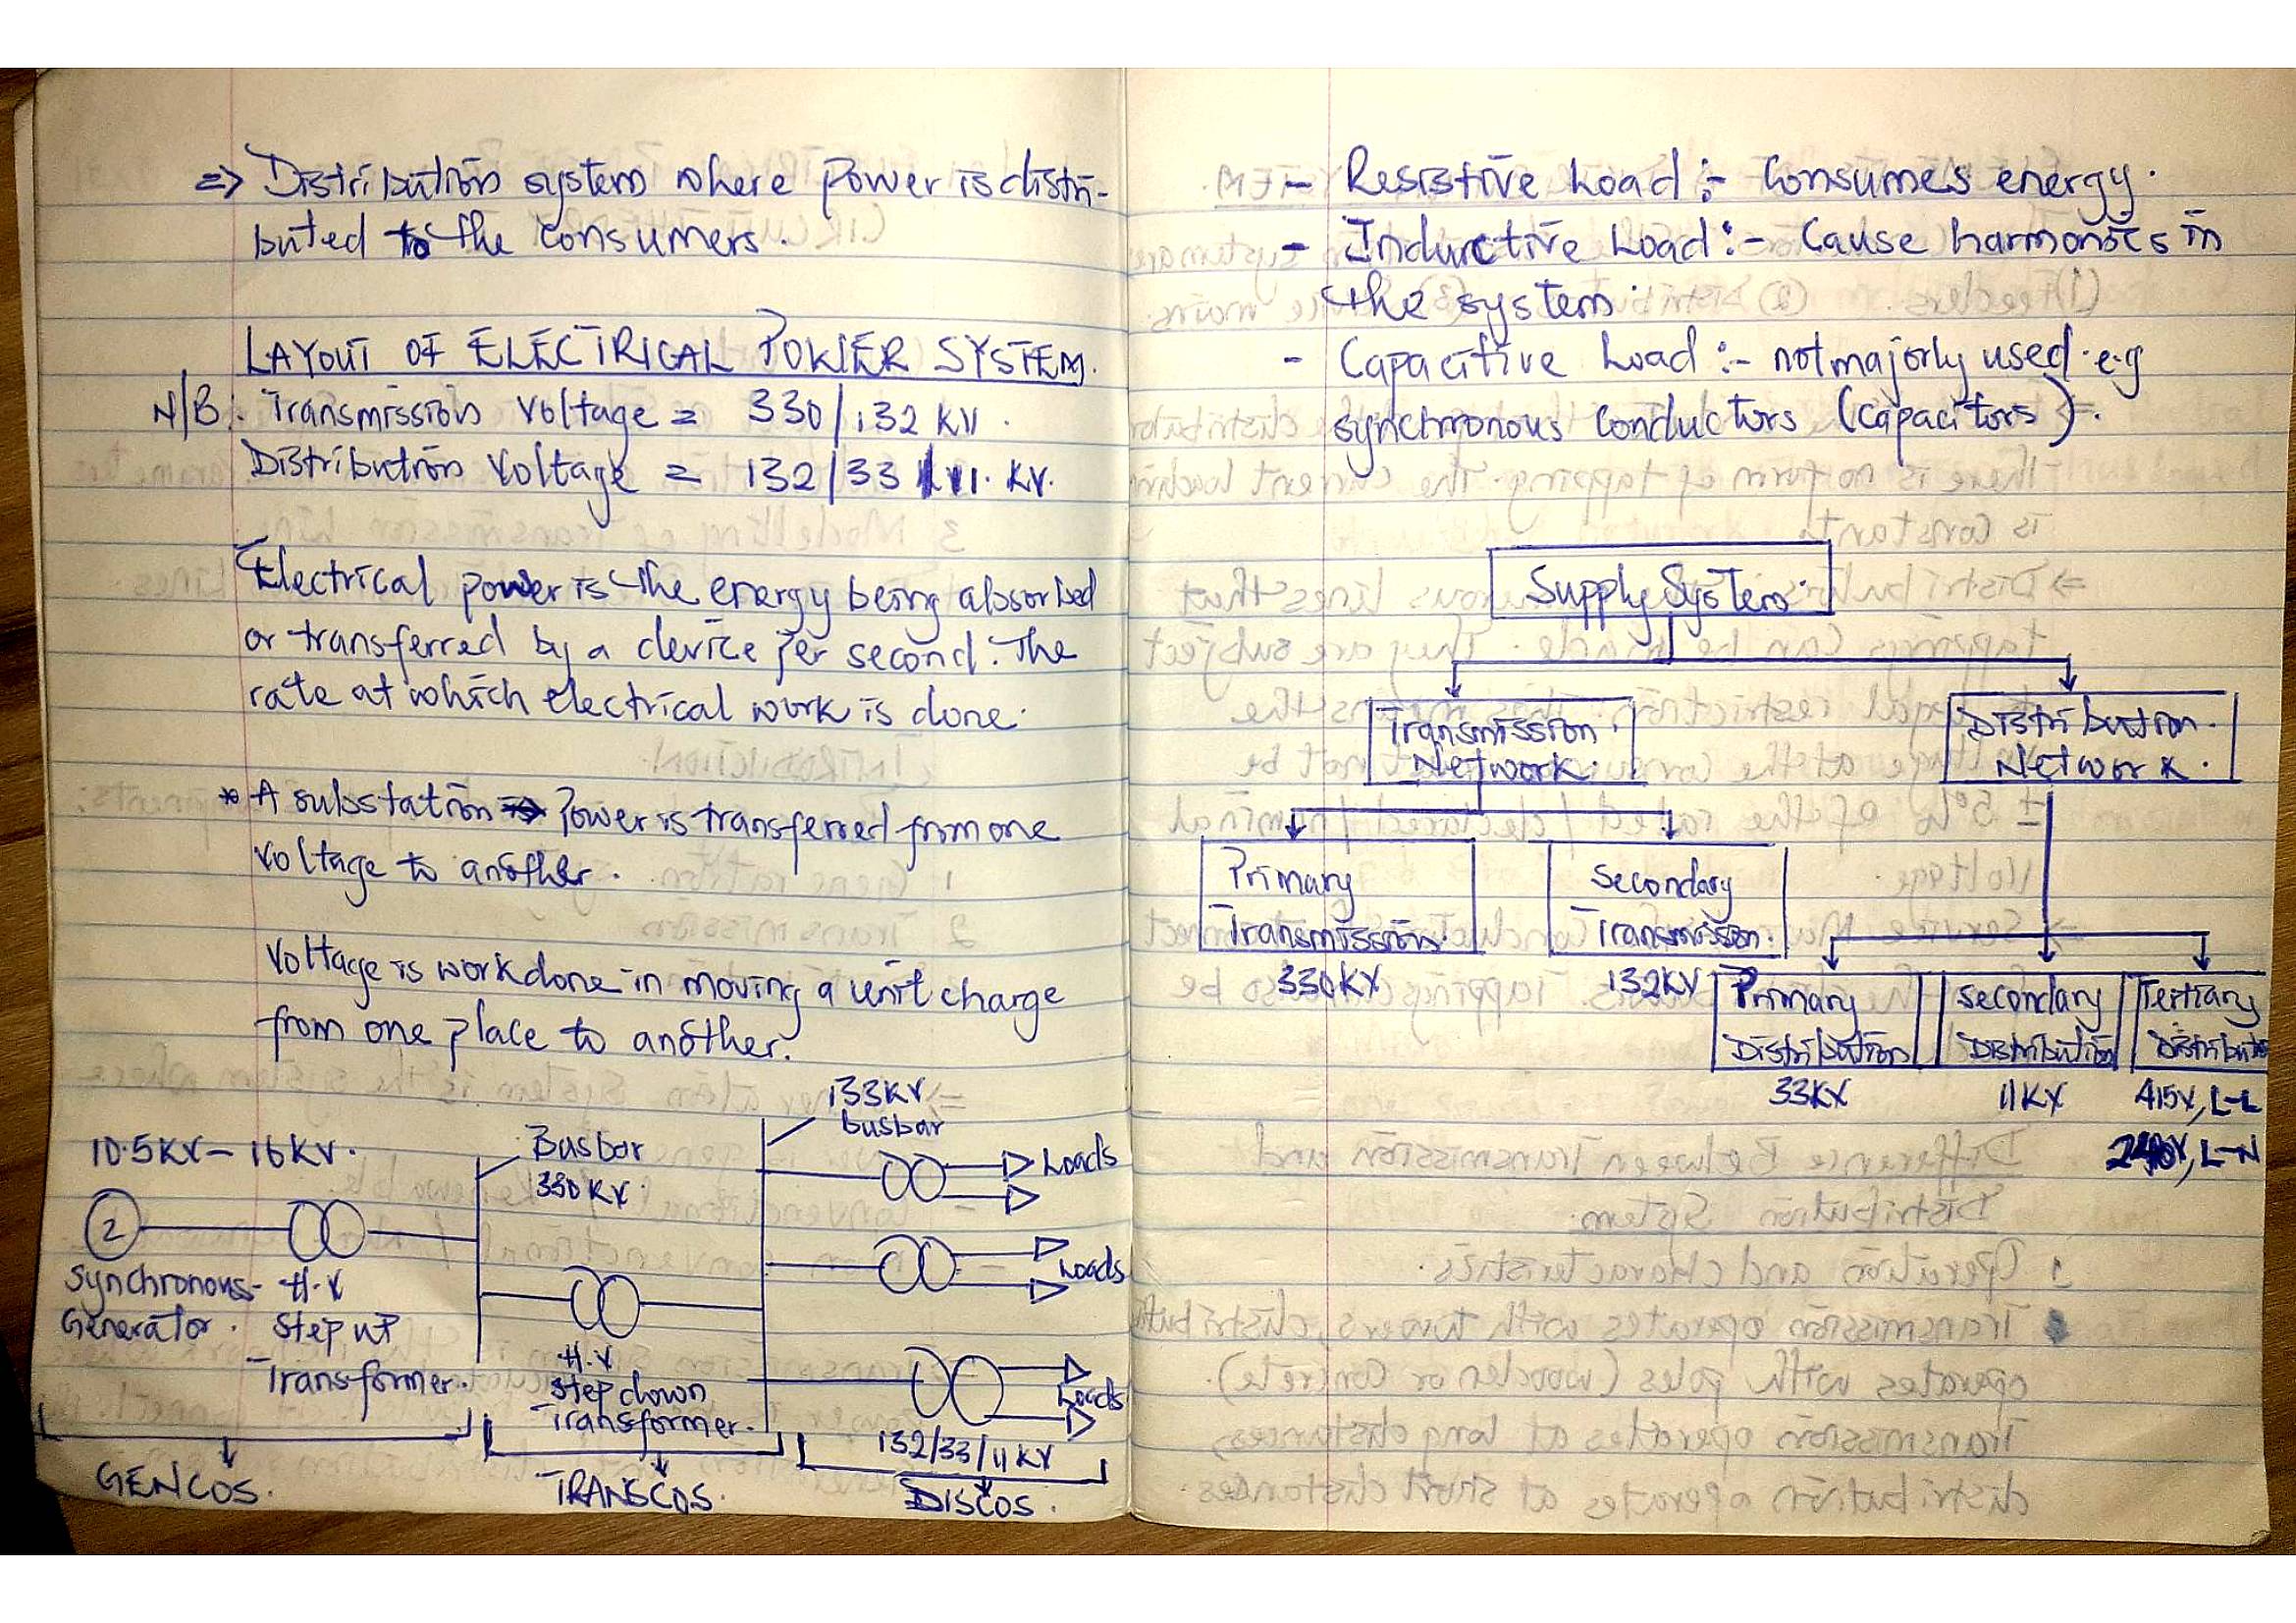 => Distribution system where power is distri-
buted to the consumers.
LAYOUT OF ELECTRICAL POWER SYSTEM.
N/B: Transmission Voltage = 330/132 KV.
Distribution Voltage = 132/33/11. KV.
Electrical power is the energy being absorbed
or transferred by a device per second. The
rate at which electrical work is done.
* A substation => Power is transferred from one
voltage to another.
Voltage is workdone in moving a unit charge
from one place to another.
133KV
busbar
10.5KV - 16KV.
Busbar
330KV.
Loads
2
Synchronous
Generator.
H.V
Step up
Transformer.
Loads
H.V
Step down
Transformer.
Loads
132/33/11KV
GENCOS.
TRANSCOS.
DISCOS.
- Resistive Load :- Consumes energy.
- Inductive Load :- Cause harmonics in
the system.
- Capacitive Load :- not majorly used. e.g
synchronous conductors (capacitors).
Supply System.
Transmission
Network.
Distribution.
Network.
Primary
Transmission.
330KV
Secondary
Transmission.
132KV
Primary
Distribution
33KV
Secondary
Distribution
11KV
Tertiary
415V, L-L
L-N